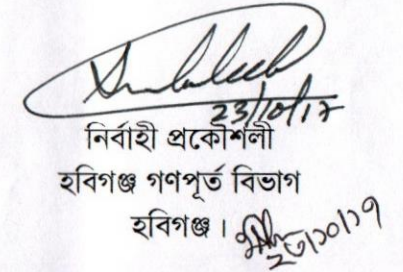 23/10/17
নির্বাহী প্রকৌশলী
হবিগঞ্জ গণপূর্ত বিভাগ
হবিগঞ্জ।
২৩/১০/১৭